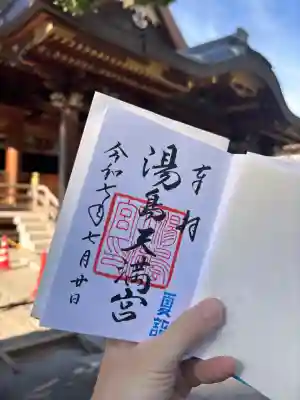 奉拝
湯島天満宮
令和七年七月廿日
夏詣